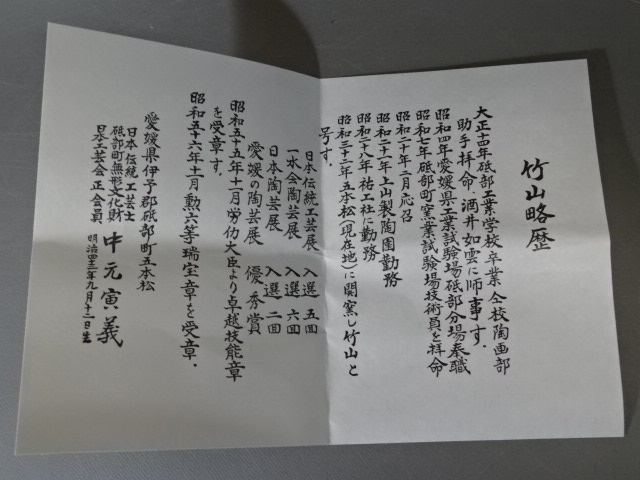 竹山略歴
大正十四年砥部工業学校卒業 全校陶画部
助手拝命・酒井如雲に師事す・
昭和四年愛媛県工業試験場砥部分場奉職
昭和七年砥部町窯業試験場技術員を拝命
昭和二十年二月応召
昭和二十一年上山製陶園勤務
昭和二十八年祐工社に勤務
昭和三十二年五本松(現在地)に開窯し竹山と
号す.
日本伝統工芸展 入選 五回
一水会陶芸展 入選 六回
日本陶芸展 入選 二回
愛媛の陶芸展 優秀賞
昭和五十五年十一月労仂大臣より卓越技能章
を受章す.
昭和五十六年十一月勲六等瑞宝章を受章.
愛媛県伊予郡砥部町五本松
日本伝統工芸士
砥部町無形文化財
日本工芸会正会員
中元寅義
明治四三年九月十二日生